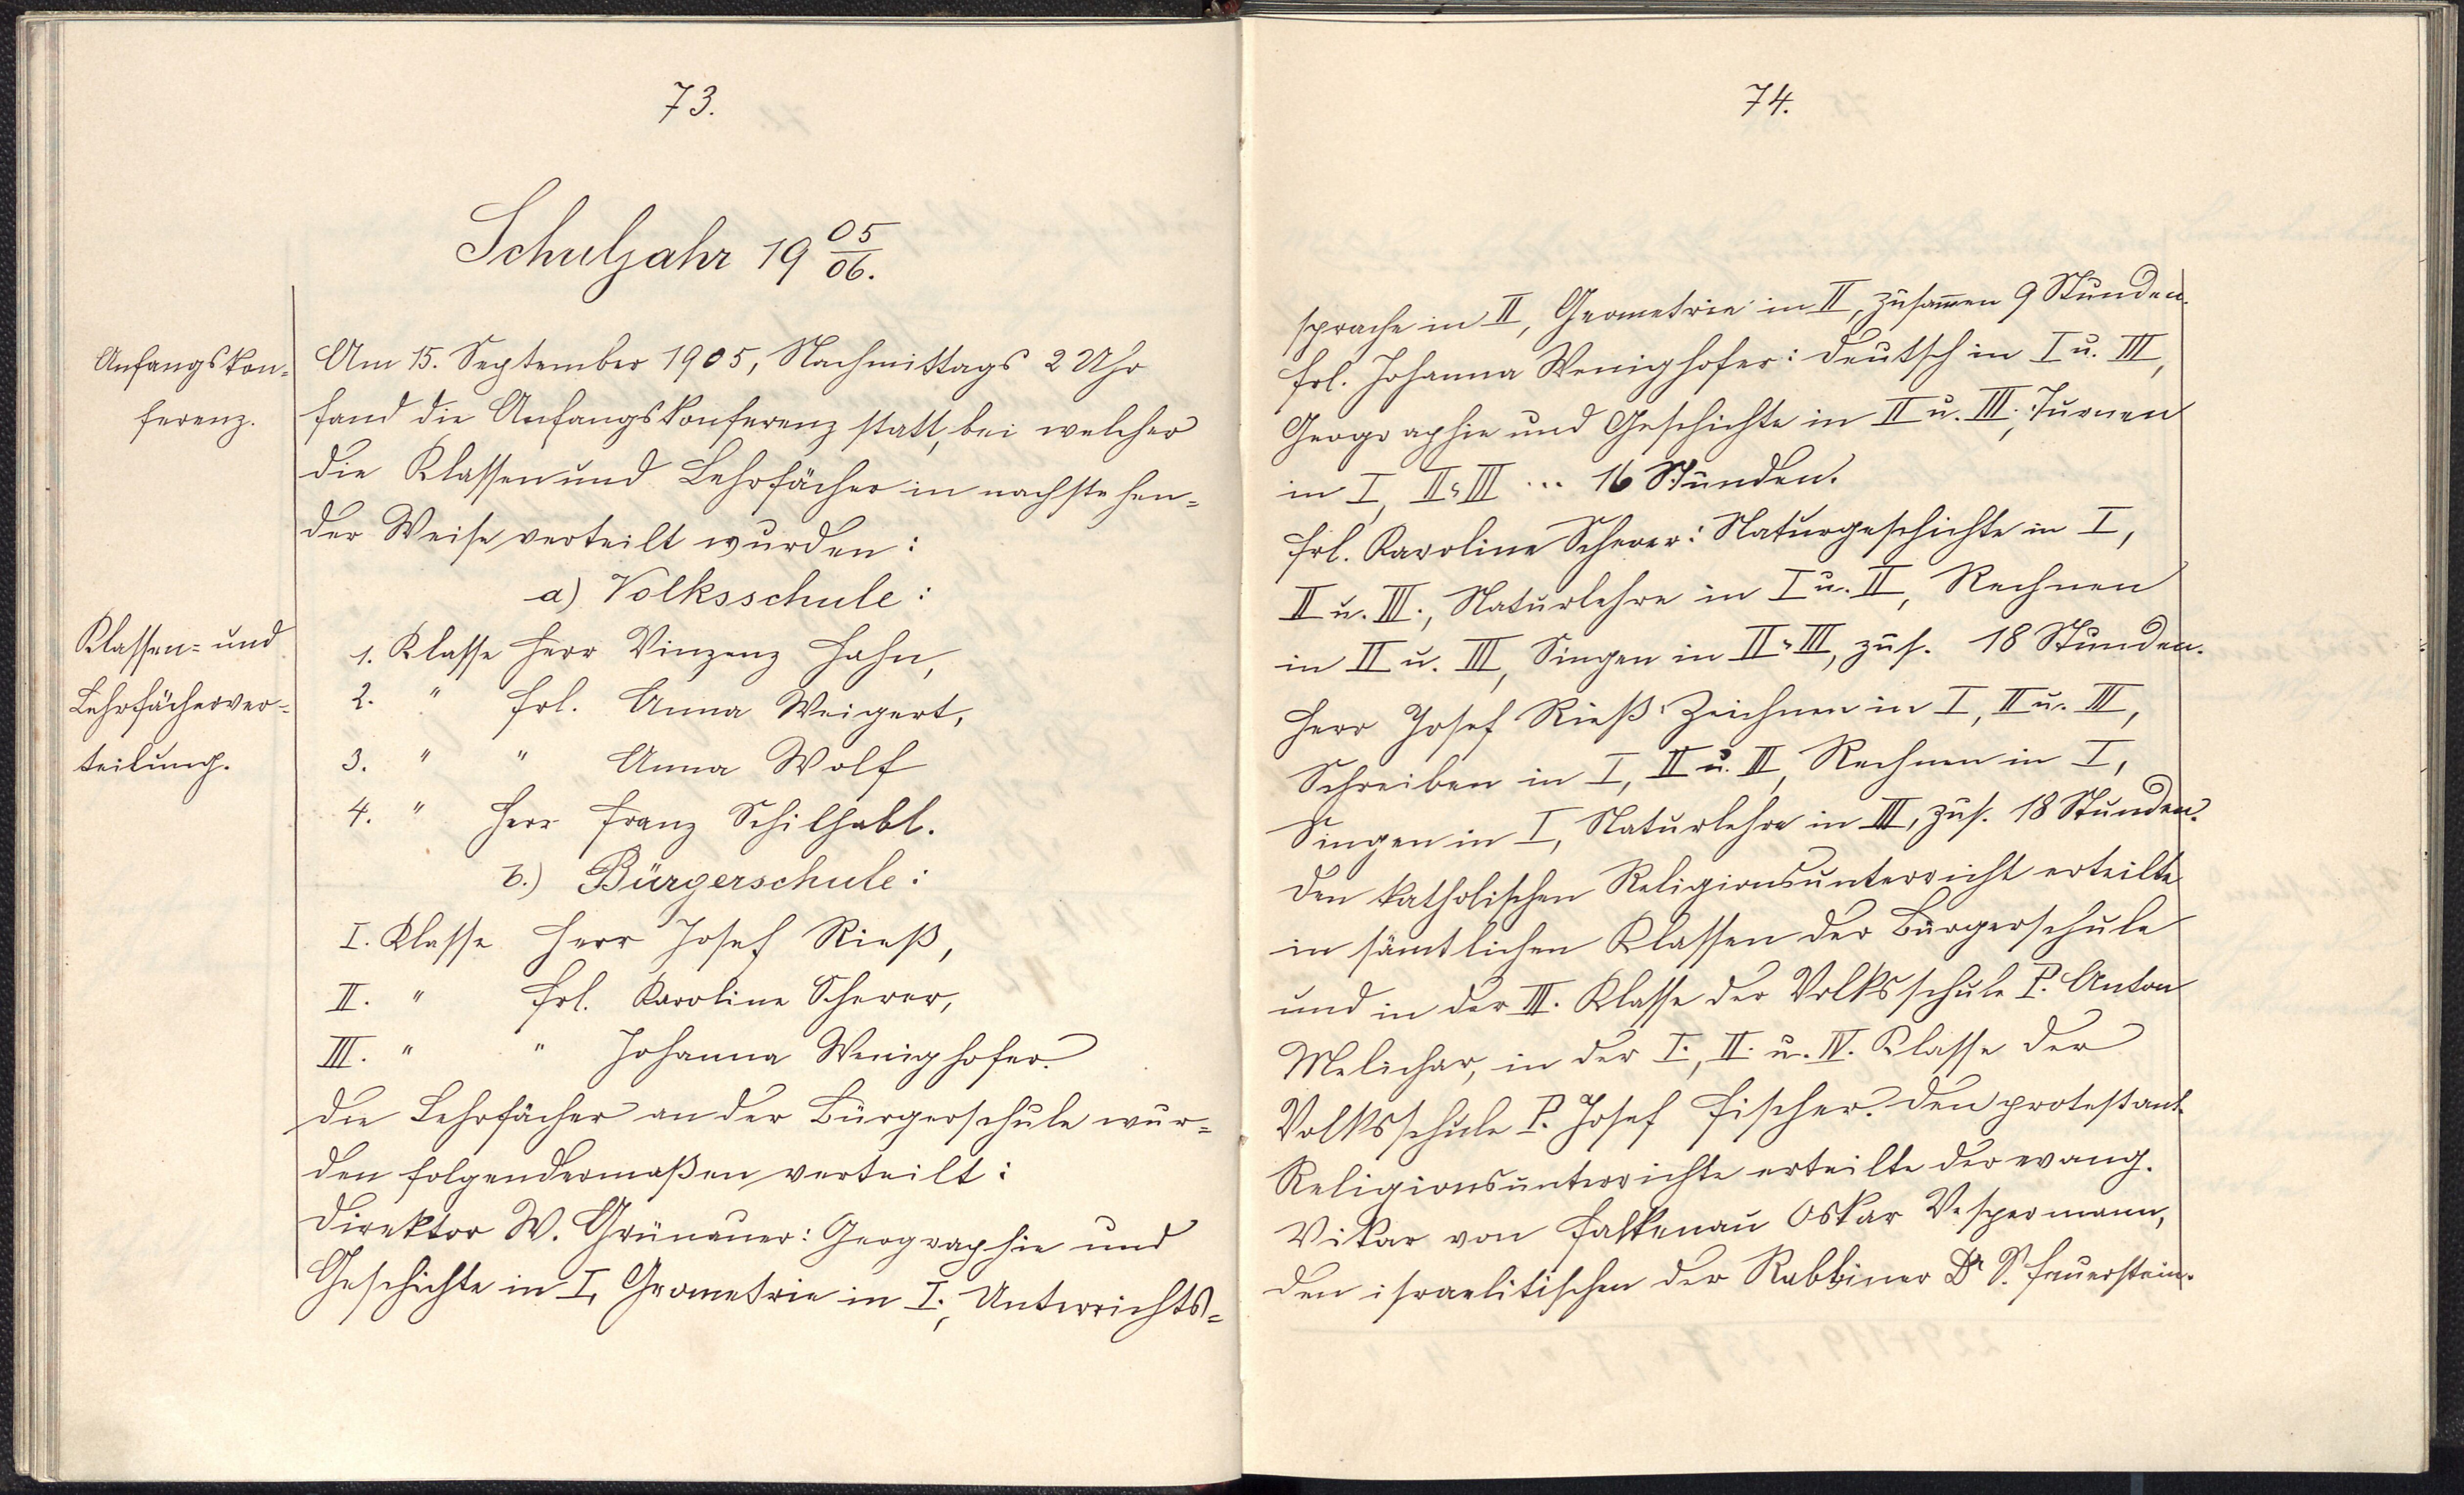 73.
Schuljahr 19 05/06.
Anfangskon=
ferenz.
Am 15. September 1905, Nachmittags 2 Uhr
fand die Anfangskonferenz statt, bei welcher
die Klassen und Lehrfächer in nachstehen=
der Weise verteilt wurden:
a) Volksschule:
Klassen= und
Lehrfächerver=
teilung.
1. Klasse Herr Vinzenz Hahn,
2. " Frl. Anna Weigert,
3. " " Anna Wolf
4. " Herr Franz Schilhabl.
b.) Bürgerschule:
I. Klasse Herr Josef Rieß,
II. " Frl. Karoline Scherer,
III. " " Johanna Wenighofer.
Die Lehrfächer an der Bürgerschule wur=
den folgendermaßen verteilt:
Direktor W. Grünauer: Geographie und
Geschichte in I, Geometrie in I., Unterrichts=
74.
sprache in II, Geometrie in II, zusam̅en 9 Stunden.
Frl. Johanna Wenighofer: Deutsch in I u. III,
Geographie und Geschichte in II u. III., Turnen
in I, II & III ... 16 Stunden.
Frl. Karoline Scherer: Naturgeschichte in I,
II u. III., Naturlehre in I u. II, Rechnen
in II u. III, Singen in II & III, zus. 18 Stunden.
Herr Josef Rieß: Zeichnen in I, II u. III,
Schreiben in I, II u. III, Rechnen in I,
Singen in I, Naturlehre in III, zus. 18 Stunden.
Den katholischen Religionsunterricht erteilte
in sämtlichen Klassen der Bürgerschule
und in der III. Klasse der Volksschule P. Anton
Melichar, in der I., II. u. IV. Klasse der
Volksschule P. Josef Fischer. Den protestant.
Religionsunterrichte erteilte der evang.
Vikar von Falkenau Oskar Vespermann,
den israelitischen der Rabbiner Dr S. Feuerstein.